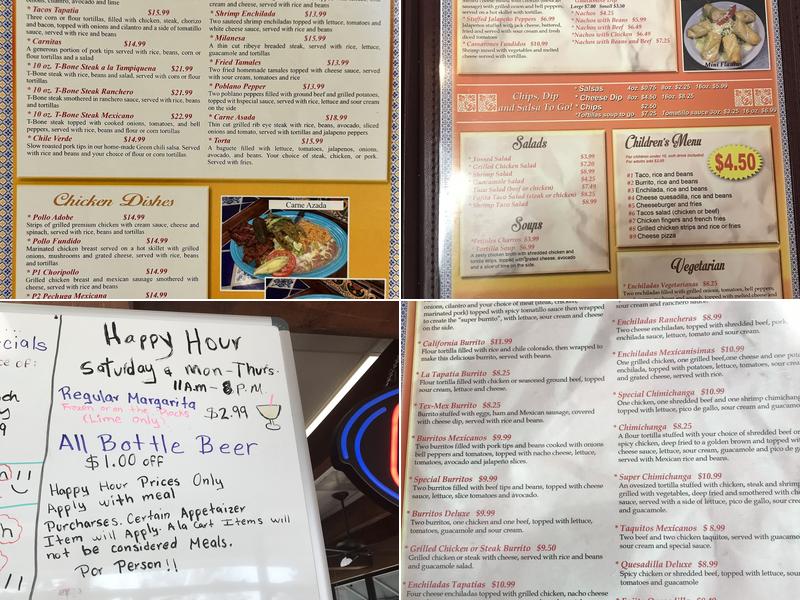 onions, cilantro, avocado and lime
* Tacos Tapatia $15.99
Three corn or flour tortillas, filled with chicken, steak, chorizo
and bacon, topped with onions and cilantro and a side of tomatillo
sauce, served with rice and beans.
* Carnitas $14.99
A generous portion of pork tips served with rice, beans, corn or
flour tortillas and a salad
* 10 oz. T-Bone Steak a la Tampiquena $21.99
T-Bone steak, rice and beans and salad, served with corn or flour
tortillas
* 10 oz. T-Bone Steak Ranchero $21.99
T-Bone steak smothered in ranchero sauce, served with rice, beans
and tortillas
* 10 oz. T-Bone Steak Mexicano $22.99
T-Bone steak topped with cooked onions, tomatoes, and bell
peppers, served with rice, beans and flour or corn tortillas
* Chile Verde $14.99
Slow roasted pork tips in our home-made Green chili salsa. Served
with rice and beans and your choice of flour or corn tortillas.
cream and cheese, served with rice and beans
* Shrimp Enchilada $13.99
Two sauteed shrimp enchiladas topped with lettuce, tomatoes and
white cheese sauce, served with rice and beans
* Milanesa $15.99
A thin cut ribeye breaded steak, served with rice, lettuce,
guacamole and tortillas
* Fried Tamales $13.99
Two fried homemade tamales topped with cheese sauce, served
with sour cream, tomatoes and rice
* Poblano Pepper $13.99
Two poblano peppers filled with ground beef and grilled potatoes,
topped wit hspecial sauce, served with rice, lettuce and sour cream
on the side
* Carne Asada $18.99
Thin cut grilled rib eye steak with rice, beans, avocado, sliced
onions and tomato, served with tortillas and jalapeno peppers
* Torta $15.99
A baguette filled with lettuce, tomatoes, jalapenos, onions,
avocado, and beans. Your choice of steak, chicken, or pork.
Served with fries.
Chicken Dishes
* Pollo Adobe $14.99
Strips of grilled premium chicken with cream sauce, cheese and
spinach, served with rice, beans and tortillas
* Pollo Fundido $14.99
Marinated chicken breast served on a hot skillet with grilled
onions, mushrooms and grated cheese, served with rice, beans
and tortillas
* P1 Choripollo $14.99
Grilled chicken breast and mexican sausage smothered with
cheese, served with rice and beans
* P2 Pechuga Mexicana $14.99
Carne Azada
mesquit grilled with green onions and bell
peppers served on a hot skillet with tortillas
* Stuffed Jalapeño Peppers $6.99
Jalapenos stuffed with jack cheese, battered,
fried and served with sour cream and fresh
diced tomatoes
* Camarones Fundidos $10.99
Shrimp mixed with vegetables and melted
cheese served with tortillas
Large $7.00 Small $3.50
*Nachos $4.25
*Nachos with Beans $5.99
*Nachos with Beef $6.49
*Nachos with Chicken $6.49
*Nachos with Beans and Beef $7.25
Mini Flautas
Chips, Dip
and Salsa To Go!
* Salsas 4oz. $0.75 8oz $2.25 16oz. $5.99
* Cheese Dip 8oz $4.50 16oz. $8.25
* Chips $2.50
*Tortillas soup to go $7.25 Tomatillo sauce 3oz. $3.25 16 oz $6.99
Salads
* Tossed Salad $3.99
* Grilled Chicken Salad $7.20
* Shrimp Salad $8.99
* Guacamole Salad $4.25
* Taco Salad (beef or chicken) $7.49
* Fajita Taco Salad (steak or chicken) $8.25
* Shrimp Taco Salad $8.99
Soups
*Frijoles Charros $3.99
*Tortilla Soup $6.99
A zesty chicken broth with shredded chicken and
tortilla strips, topped with grated cheese, avocado
and a slice of lime on the side.
Children's Menu
For children under 10, soft drink included
For adults add $2.00
$4.50
#1 Taco, rice and beans
#2 Burrito, rice and beans
#3 Enchilada, rice and beans
#4 Cheese quesadilla, rice and beans
#5 Cheeseburger and fries
#6 Tacos salad (chicken or beef)
#7 Chicken fingers and french fries
#8 Grilled chicken strips and rice or fries
#9 Cheese pizza
Vegetarian
* Enchiladas Vegetarianas $8.25
Two enchiladas filled with grilled onions, tomatoes, bell peppers,
cials
ce of:
ch
y
9
h
Happy Hour
Saturday & mon-Thurs.
11Am - 8 P.M.
Regular Margarita
Frozen or on the Rocks
(Lime only)
$2.99
All Bottle Beer
$1.00 off
Happy Hour Prices Only
Apply with meal
Purcharses. Certain Appetaizer
Item will Apply. A la Cart Items will
not be considered Meals.
Por Person!!
onions, cilantro and your choice of meat (steak, chicken,
marinated pork) topped with spicy tomatillo sauce then wrapped
to create the "super burrito", with lettuce, sour cream and cheese
on the side.
* California Burrito $11.99
Flour tortilla filled with rice and chile colorado, then wrapped to
make this delicious burrito, served with beans.
* La Tapatia Burrito $8.25
Flour tortilla filled with chicken or seasoned ground beef, topped
sour cream, lettuce, and cheese.
* Tex-Mex Burrito $8.25
Burrito stuffed with eggs, ham and Mexican sausage, covered
with cheese dip, served with rice and beans.
* Burritos Mexicanos $9.99
Two burritos filled with pork tips and beans cooked with onions
bell peppers and tomatoes, topped with nacho cheese, lettuce,
tomatoes, avocado and jalapeño slices.
* Special Burritos $9.99
Two burritos filled with beef tips and beans, topped with cheese
sauce, lettuce, slice tomatoes and avocado.
* Burritos Deluxe $9.99
Two burritos, one chicken and one beef, topped with lettuce,
tomatoes, guacamole and sour cream.
* Grilled Chicken or Steak Burrito $9.50
Grilled chicken or steak with cheese, served with rice and beans
and guacamole salad.
* Enchiladas Tapatias $10.99
Four cheese enchiladas topped with grilled chicken, nacho cheese
sour cream and ranchero sauce.
* Enchiladas Rancheras $8.99
Two cheese enchiladas, topped with shredded beef, pork
enchilada sauce, lettuce, tomato and sour cream.
* Enchiladas Mexicanisimas $10.99
One grilled chicken, one grilled beef, one cheese and one
enchilada, topped with potatoes, lettuce, tomatoes, sour cream
and grated cheese, served with rice.
* Special Chimichanga $10.99
One chicken, one shredded beef and one shrimp chimichanga
topped with lettuce, pico de gallo, sour cream and guacamole
* Chimichanga $8.25
A flour tortilla stuffed with your choice of shredded beef or
spicy chicken, deep fried to a golden brown and topped with
cheese sauce, lettuce, sour cream, guacamole and pico de
served with Mexican rice and beans.
* Super Chimichanga $10.99
An oversized tortilla stuffed with chicken, steak and shrimp
grilled with vegetables, deep fried and smothered with cheese
sauce, served with a side of lettuce, pico de gallo, sour cream
and guacamole.
* Taquitos Mexicanos $ 8.99
Two beef and two chicken taquitos, served with guacamole
sour cream and special sauce.
* Quesadilla Deluxe $8.99
Spicy chicken or shredded beef, topped with lettuce, sour
tomatoes and guacamole